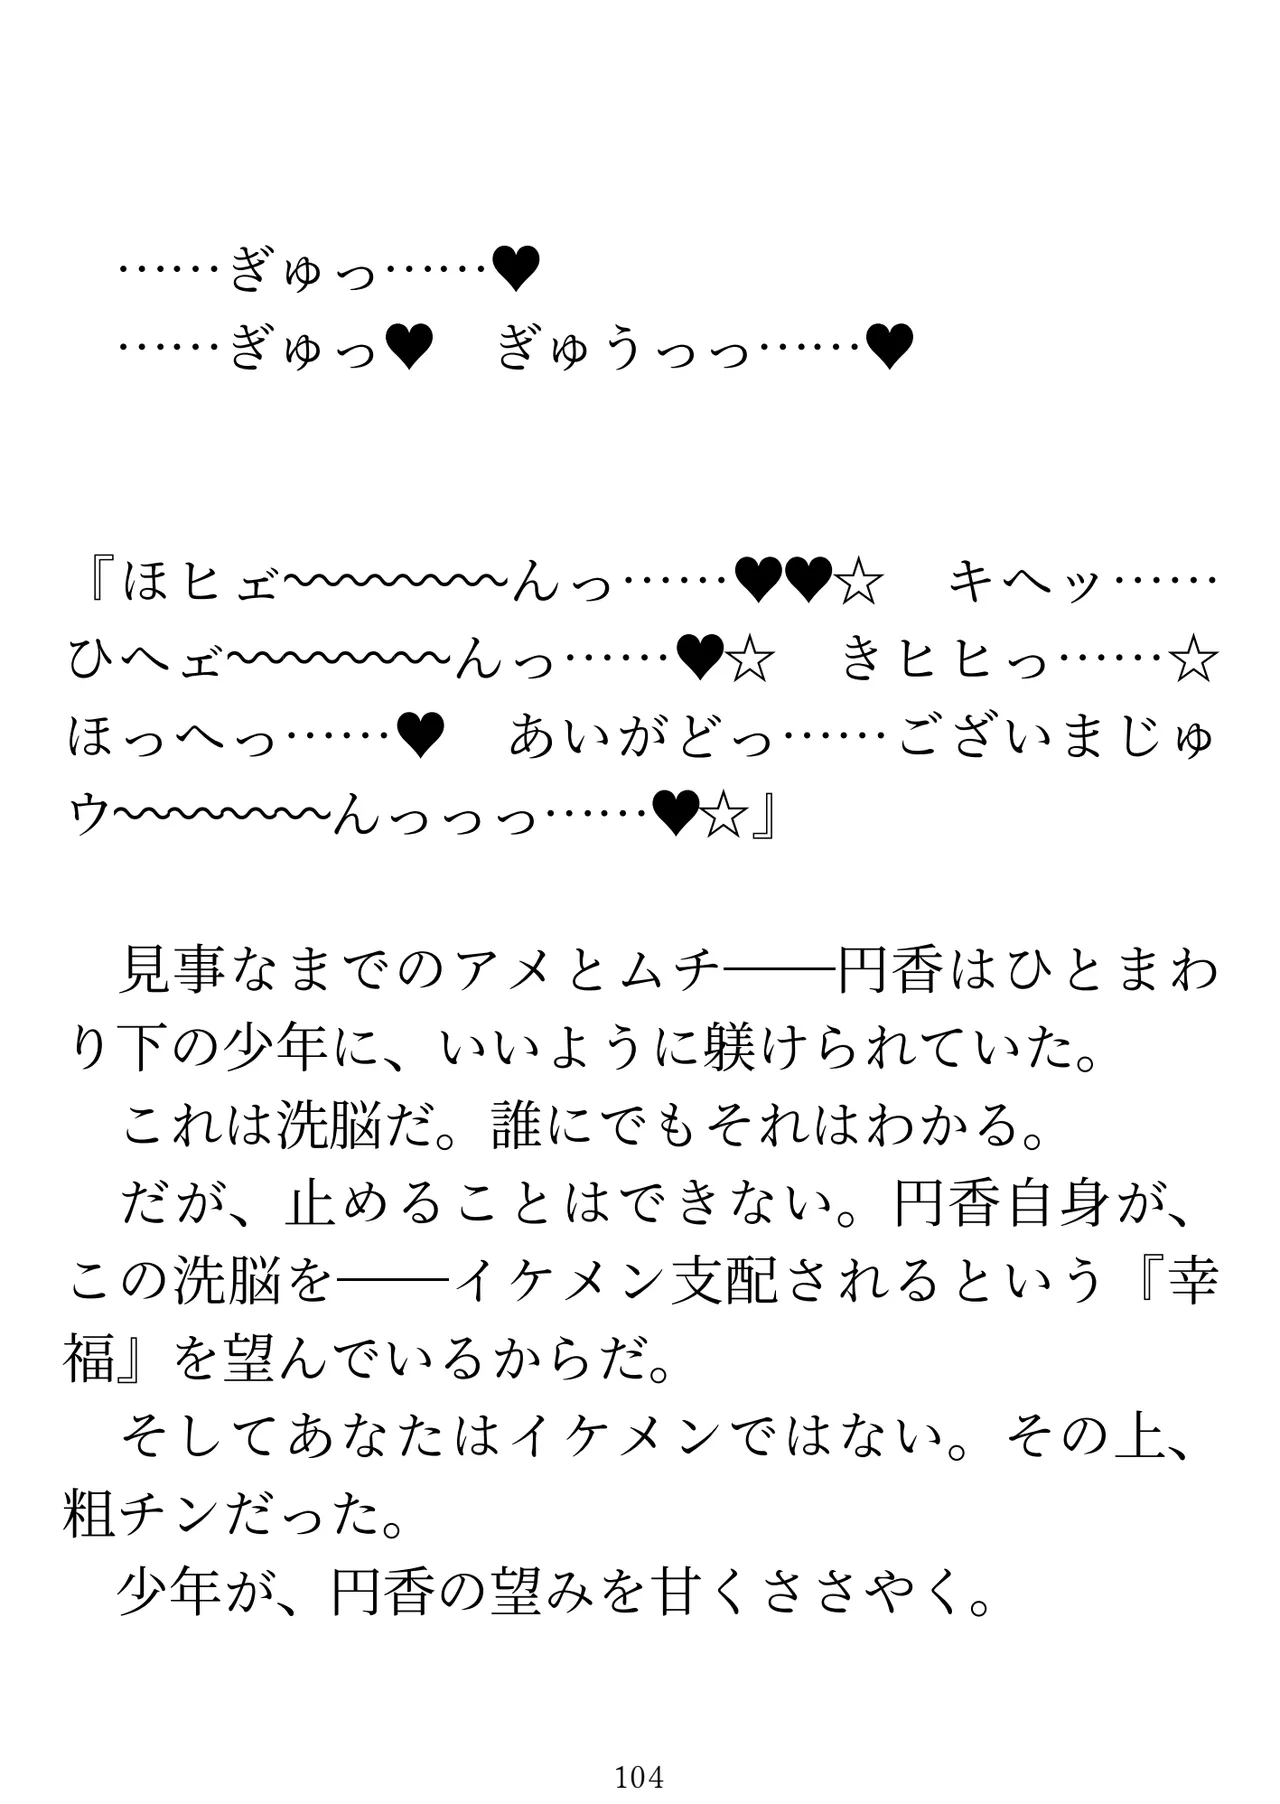 ……ぎゅっ……♥
……ぎゅっ♥　ぎゅうっっ……♥
『ほヒェ゛〜〜〜〜〜〜〜〜んっ……♥♥☆　キヘッ……
ひへェ゛〜〜〜〜〜〜〜〜んっ……♥☆　きヒヒっ……☆
ほっへっ……♥　あいがどっ……ございまじゅ
ウ〜〜〜〜〜〜〜〜んっっっ……♥☆』
見事なまでのアメとムチ――円香はひとまわ
り下の少年に、いいように躾けられていた。
これは洗脳だ。誰にでもそれはわかる。
だが、止めることはできない。円香自身が、
この洗脳を――イケメン支配されるという『幸
福』を望んでいるからだ。
そしてあなたはイケメンではない。その上、
粗チンだった。
少年が、円香の望みを甘くささやく。
104